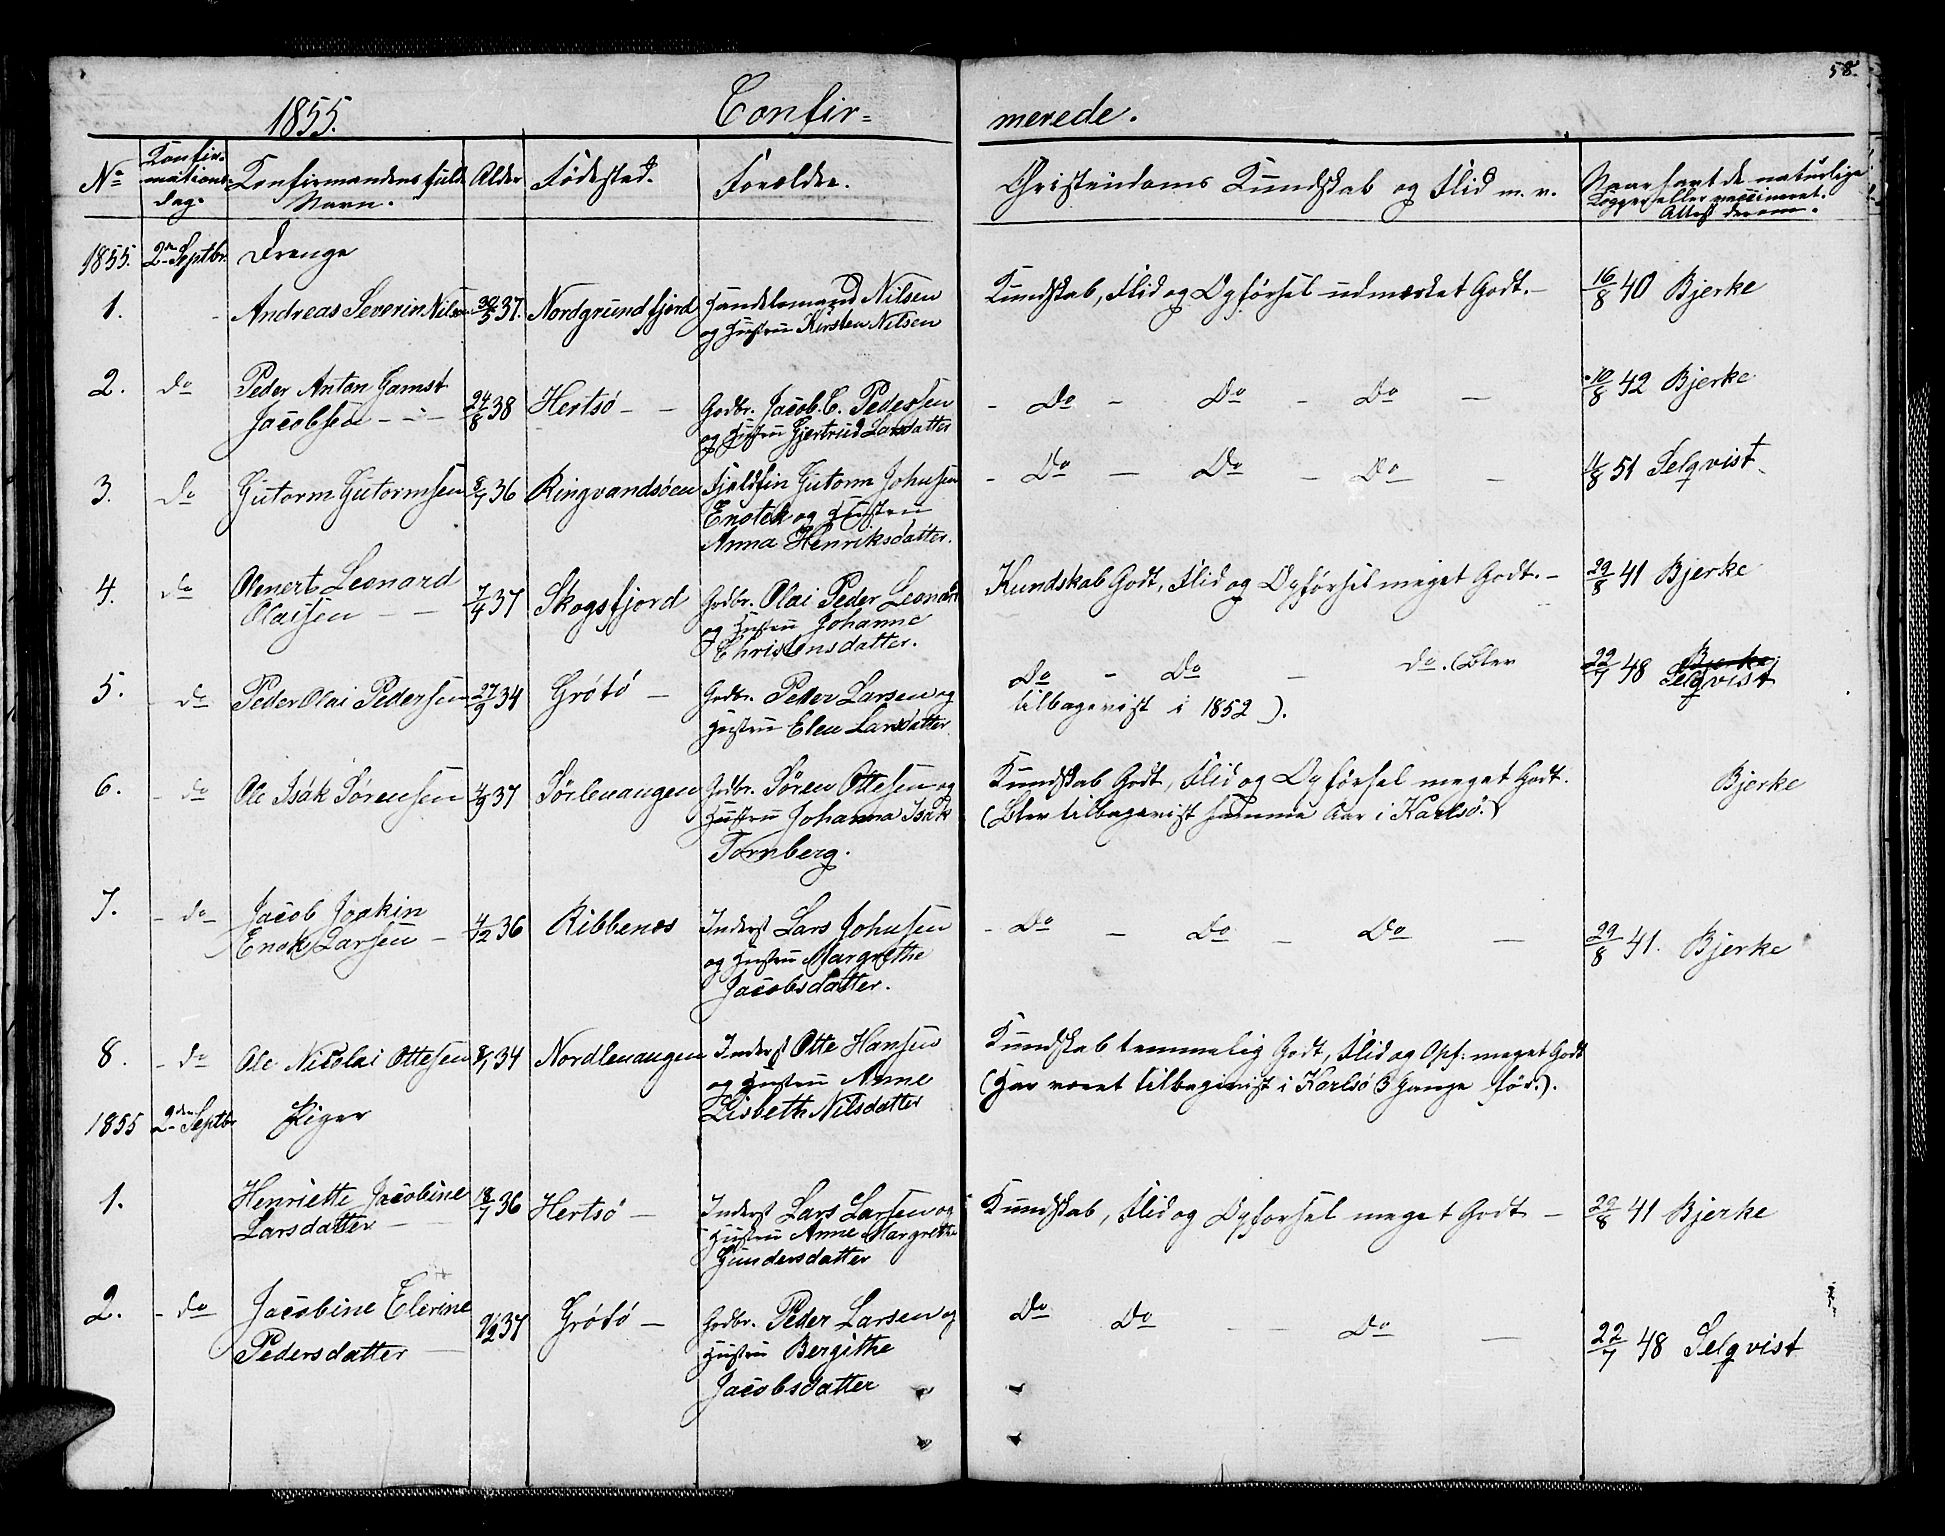 58.
1855. Confir= merede.
No Konfir= mations= dag. Konfirmandens fulde Navn. Alder Fødested. Forældre. Christendoms Kundskab og Flid m. v. Naar havt de naturlige Kopper eller vaccineret. Attest derom.
1855. 2den Septbr. Drenge
1. Andreas Severin Nilsen 37. Nordgrundfjord Handelsmand Nilsen Kundskab, Flid og Opførsel udmærket Godt. – 16/8 40 Bjerke
og Hustru Kirsten Nilsen
2. do Peder Anton Gamst
Jacobsen – – 24/8 38 Hertsø – – Gdbr. Jacob C. Pedersen – Do – Do – Do – 10/8 42 Bjerke
og Hustru Gjertrud Larsdatter
3. do Gutorm Gutormsen 8/7 36 Ringvandsøen Fjeldfin Gutorm Johnsen – Do – Do – Do – 11/8 51 Selqvist
Enotek og Hustru
Anna Henriksdatter.
4. do Olenert Leonard
Olaisen – – 7/4 37 Skogsfjord Gdbr. Olai Peder Leonard Kundskab Godt, Flid og Opførsel meget Godt. – 29/8 41 Bjerke
og Hustru Johanne
Christensdatter.
5. – do Peder Olai Pedersen 27/9 34 Grøtø – Gdbr. Peder Larsen og Do – Do – do. (Blev 22/7 48 Bjerke Selqvist
Hustru Elen Larsdatter tilbagevist i 1852).
6. – do Ole Isak Sørensen 4/9 37 Sørlenangen Gdbr. Søren Ottesen og Kundskab Godt, Flid og Opførsel meget Godt. Bjerke
Hustru Johanna Isak (Blev tilbagevist samme Aar i Karlsø.)
Tornberg.
7. – do Jacob Joakin
Enok Larsen – 4/12 36 Ribbenæs Inderst Lars Johnsen – Do – Do – Do – 29/8 41. Bjerke
og Hustru Margrethe
Jacobsdatter.
8. – do Ole Nicolai Ottesen 8/7 34 Nordlenangen Inderst Otte Hansen Kundskab temmelig Godt, Flid og Opf: meget Godt
og Hustru Anne (Har været tilbagevist i Karlsø 3 Gange før.).
Lisbeth Nilsdatter
1855 2den Septbr Piger
1. Henriette Jacobine
Larsdatter – – 18/7 36 Hertsø – Inderst Lars Larsen og Kundskab, Flid og Opførsel meget Godt – 29/8 41 Bjerke
Hustru Anne Margrethe
Gundersdatter
2. – do Jacobine Elerine
Pedersdatter – 9/12 37 Grøtø – Gdbr. Peder Larsen og Do Do – – Do – 22/7 48 Selqvist
Hustru Bergithe
Jacobsdatter